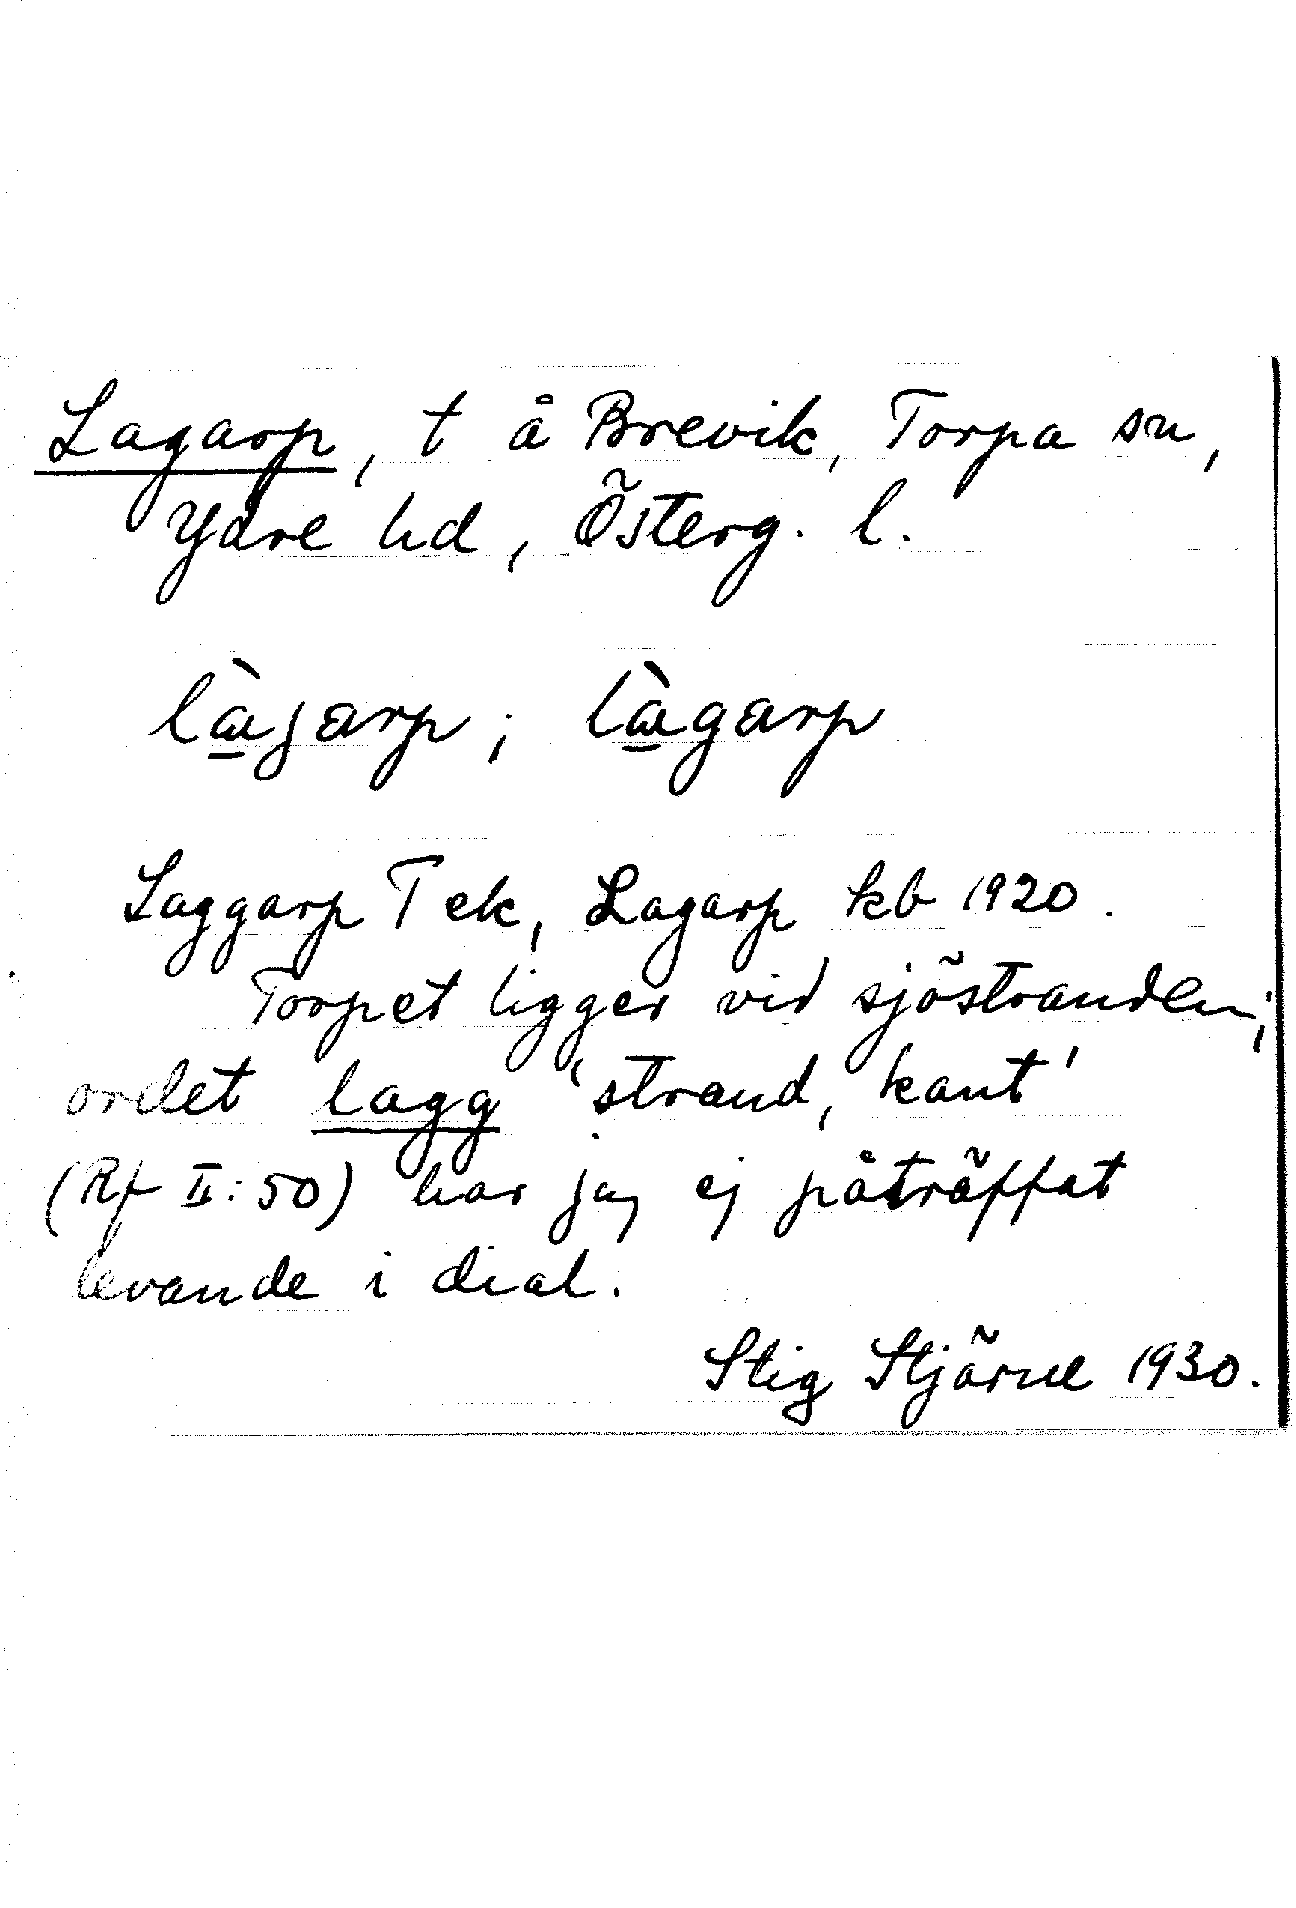 Lagarp, t å Brevik, Torpa sn,
Ydre hd, Österg. l.
lɑ̠̀jarp; lɑ̠̀garp
Laggarp T ek, Lagarp kb 1920.
Torpet ligger vid sjöstranden;
ordet lagg 'strand, kant'
(Rf II:50) har jag ej påträffat
levande i dial.
Stig Stjärne 1930.